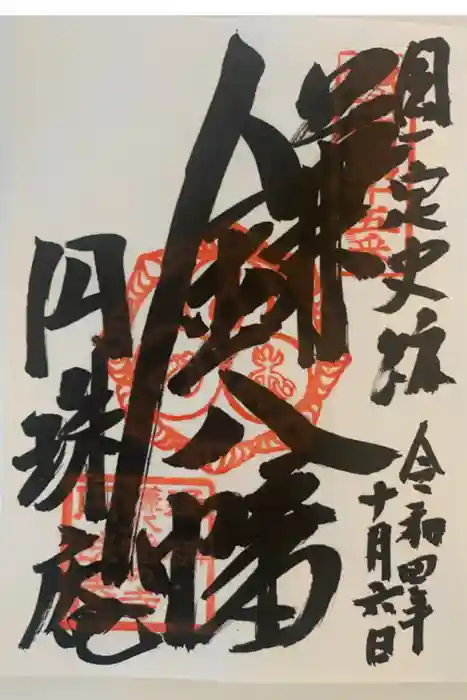 国定史跡
令和四年
十月六日
鎌八幡
円珠庵